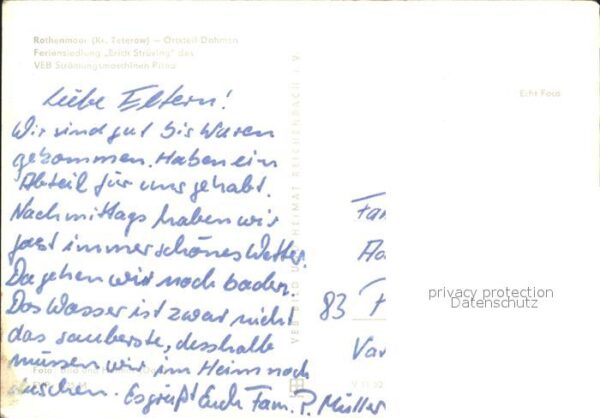 Rothenmoor (Kr. Teterow) – Ortsteil Dahmen
Feriensiedlung „Erich Strüving" des
VEB Strömungsmaschinen Pirna
Echt Foto
Liebe Eltern!
Wir sind gut bis Waren
gekommen. Haben ein
Abteil für uns gehabt.
Nachmittags haben wir
fast immer schönes Wetter.
Da gehen wir noch baden.
Das Wasser ist zwar nicht
das sauberste, desshalb
müssen wir im Heim noch
duschen. Es grüßt Euch Fam. P. Müller
VEB BILD UND HEIMAT REICHENBACH i. V.
Fam
83 P
Var
privacy protection
Datenschutz
Foto